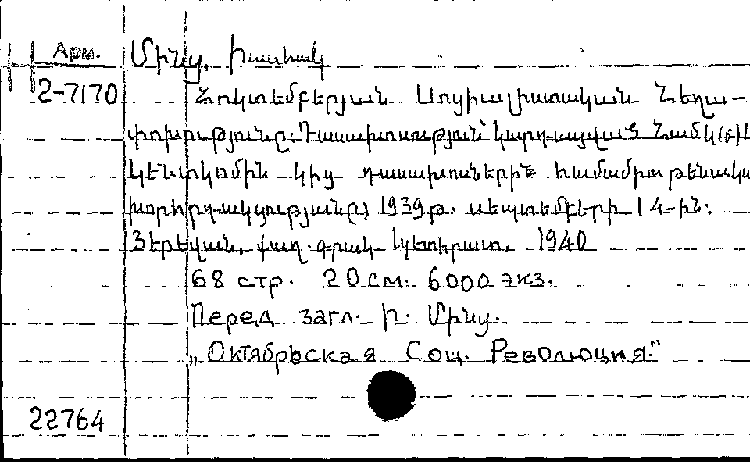 Арм. Մինց, Իսահակ
2-7170 Հոկտեմբերյան Սոցիալիստական Հեղա-
փոխությունը: Դասախոսություն կարդացված ՀամԿ(բ)Կ
Կենտկոմին կից դասախոսների համամիութենական
խորհրդակցությանը, 1939 թ. սեպտեմբերի 14-ին.
Յերեվան, քաղ. գրակ. 1940
68 стр. 20 см. 6000 экз.
Перед загл. Ի. Մինց.
„Октябрьская Соц. Революция."
22764